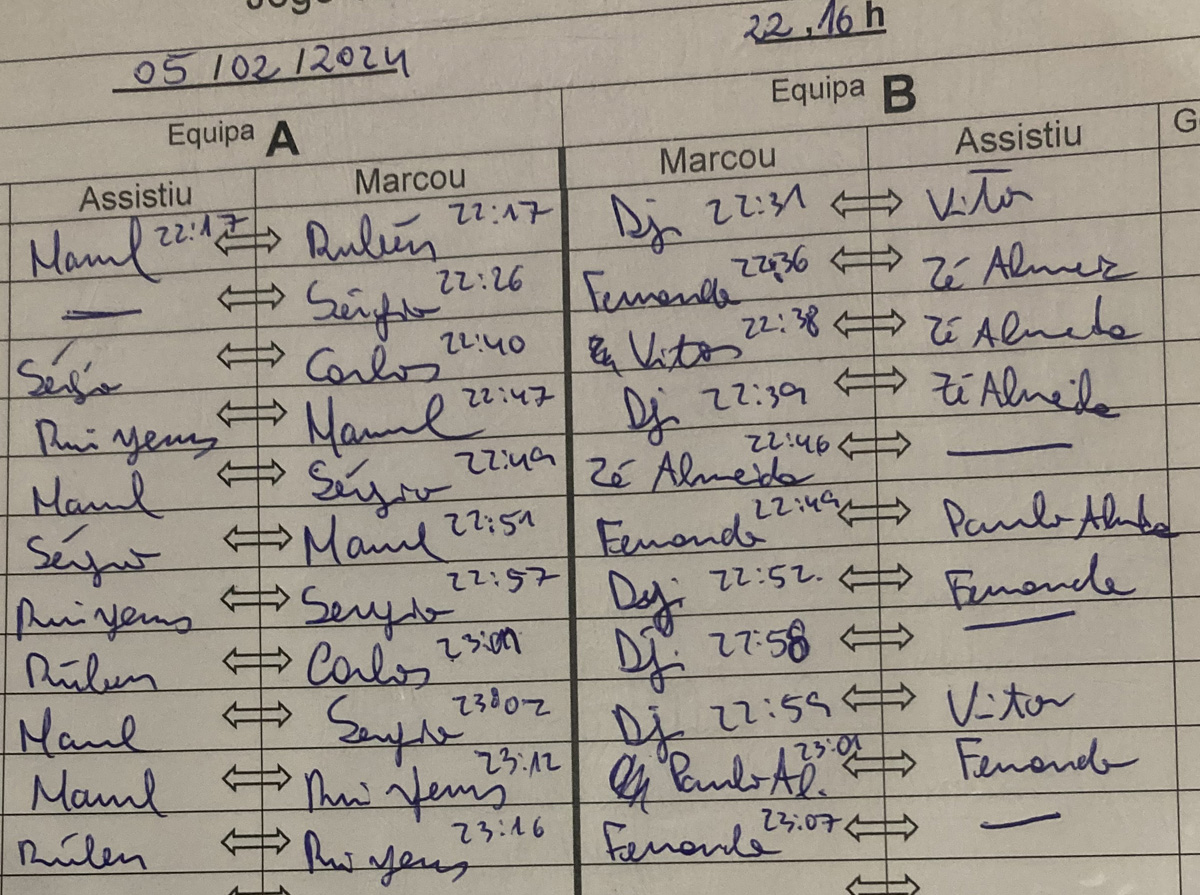 05/02/2024 22,16 h
Equipa A Equipa B
Assistiu Marcou Marcou Assistiu
Manuel 22:17 Rubén 22:17 Dj 22:31 Vitor
— Sérgio 22:26 Fernando 22:36 Zé Almeida
Sérgio Carlos 22:40 Vitor 22:38 Zé Almeida
Rui Manuel 22:47 Dj 22:39 Zé Almeida
Manuel Sérgio 22:49 Zé Almeida 22:46 —
Sérgio Manuel 22:51 Fernando 22:49 Paulo Almeida
Rui Sergio 22:57 Dj. 22:52. Fernando
Rúben Carlos Dj. 22:58 —
Manuel Sergio 23:02 Dj 22:59 Vitor
Manuel Rui 23:12 Paulo Al. 23:01 Fernando
Rúben Rui 23:16 Fernando 23:07 —